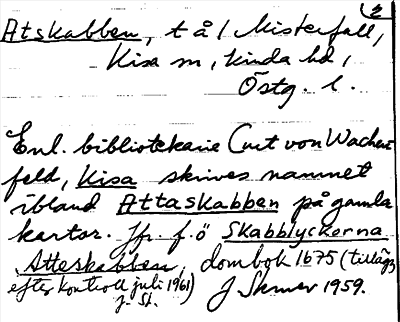 2
Atskabben, t å / Misterfall,
Kisa sn, Kinda hd,
Östg. l.
Enl. bibliotekarie Curt von Wachen-
feld, Kisa skrives namnet
ibland Attaskabben på gamla
kartor. Jfr. f.ö Skabblyckorna
Atteskabben, dombok 1675 (tillägg
efter kontroll juli 1961)
J. St. J Skruv 1959.